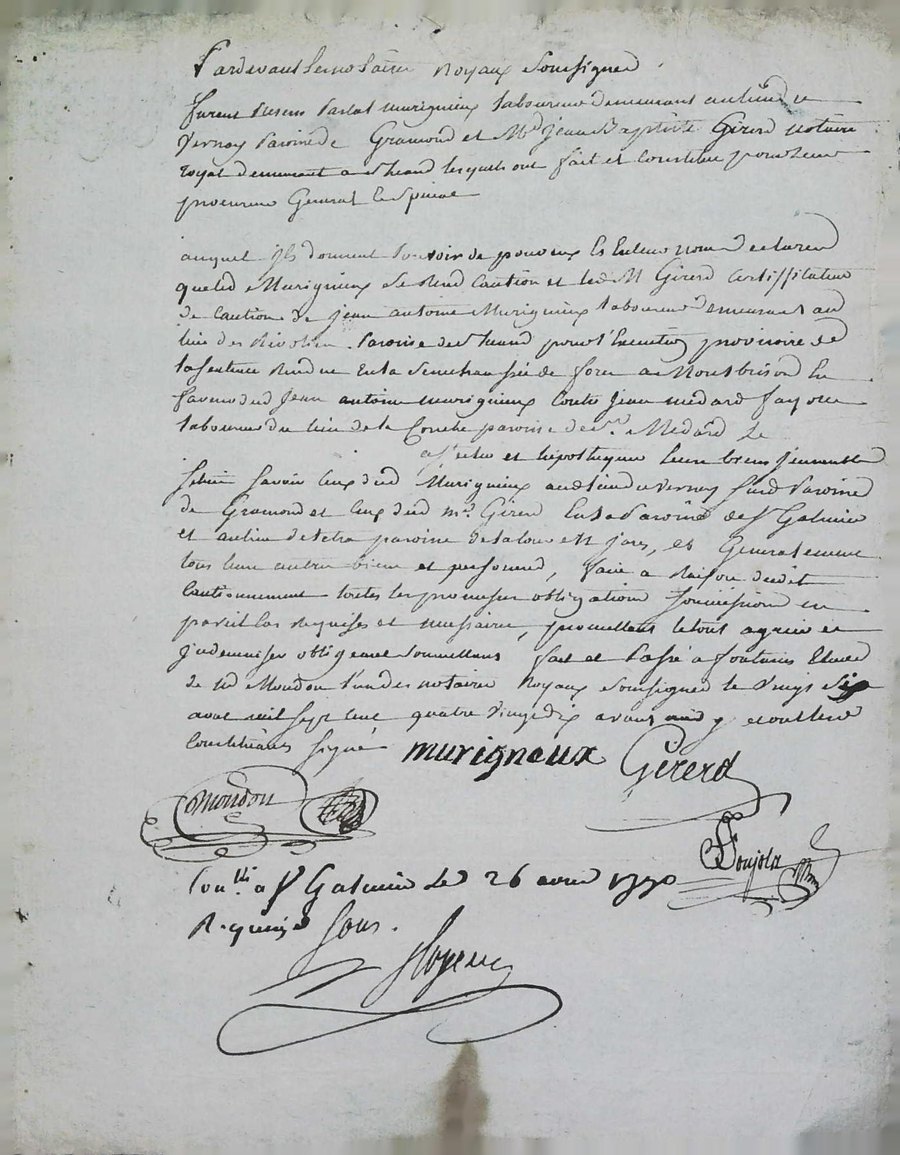 Pardevant les notaires Royaux Soussignes
furent presens murigneux laboureur demeurant au lieu du
Vernay paroisse de Gramond et Md Jean Baptiste Gérerd notaire
royal demeurant a lesquels ont fait et constitué pour leur
procureur General et Special
auquel ils donnent pouvoir de pour eux et en leur nom declarer
que led Murigneux se rend caution et led M Gérerd certifficateur
de caution de jean antoine Murigneux laboureur demeurant au
lieu des paroisse de pour l'Execution provisoire de
la sentence Rendue en la Senechaussée de forez a Montbrison En
faveur dud Jean antoine murigneux contre Jean medard fayolle
laboureur du lieu de la Conche paroisse de St Medard Le
affecter et hipothequer leurs biens jmmeubles
scavoir ceux dud Murigneux aud lieu du Vernay susd paroisse
de Gramond et ceux dud md Gérerd En la paroisse de St Galmier
et au lieu de paroisse de et Generalement
tous leurs autres biens et personnes, faire a Raison dudit
Cautionnement toutes les promesses obligations soumissions en
pareil cas Requises et necessaires, promettant le tout agreer et
jndemniser obligeant soumettant fait et Passé a fontanes Etude
de Md Moudon l'un des notaires Royaux Soussignes le Vingt Six
avril mil sept cent quatre vingt dix avant midy et ont lesd
Constituans signé murigneux Gérerd
Moudon
Poujola
Conllé a St Galmier Le 26 avril 1790
R quinze Sous.